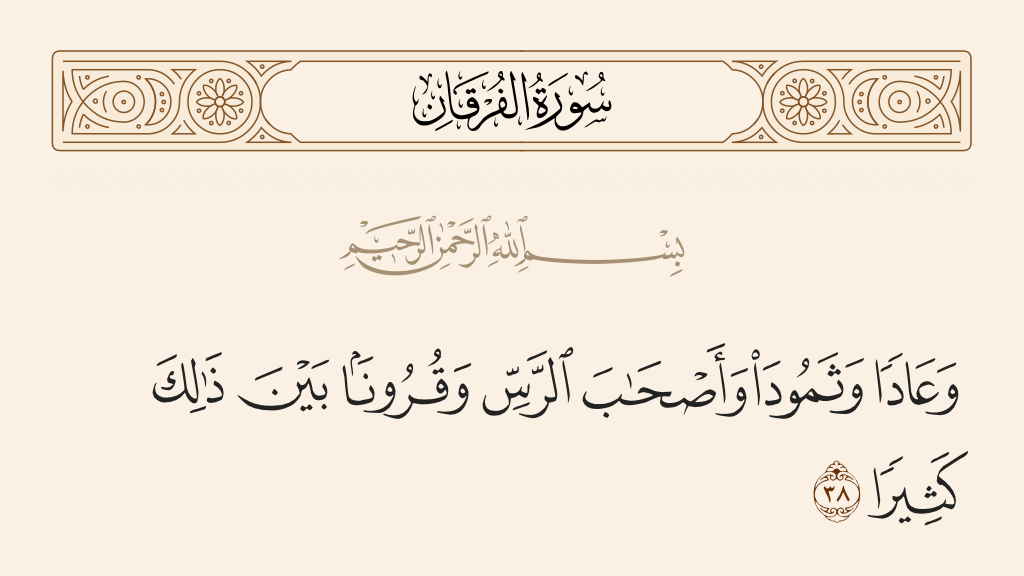 سُورَةُ الْفُرْقَانِ
بِسْمِ ٱللَّهِ ٱلرَّحْمَٰنِ ٱلرَّحِيمِ
وَعَادًا وَثَمُودَا۟ وَأَصْحَـٰبَ ٱلرَّسِّ وَقُرُونًۢا بَيْنَ ذَٰلِكَ
كَثِيرًا ٣٨